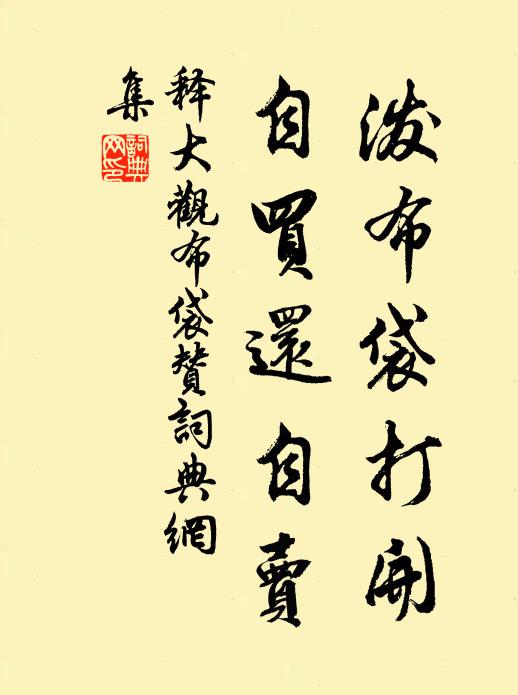 泼布袋打開
自買還自賣
释大觀布袋贊詞典網
集
詞典
网印